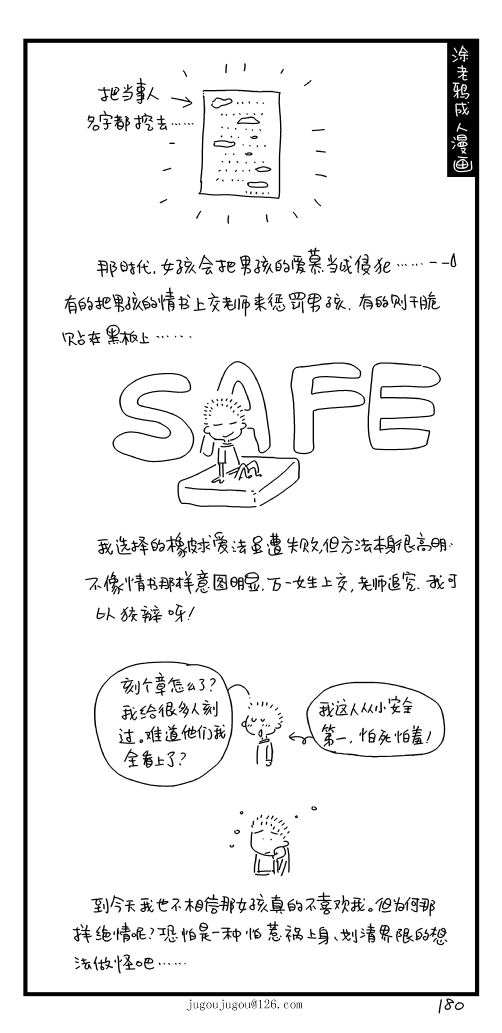 涂老鸦成人漫画
把当事人
名字都挖去……
那时代,女孩会把男孩的爱慕当成侵犯……
有的把男孩的情书上交老师来惩罚男孩,有的则干脆
贴在黑板上……
SAFE
我选择的橡皮求爱法虽遭失败,但方法本身很高明.
不像情书那样意图明显,万一女生上交,老师追究,我可
以狡辩呀!
刻个章怎么了?
我给很多人刻
过。难道他们我
全看上了?
我这人从小安全
第一,怕死怕羞!
到今天我也不相信那女孩真的不喜欢我。但为何那
样绝情呢?恐怕是一种怕惹祸上身、划清界限的想
法做怪吧……
jugoujugou@126.com
180